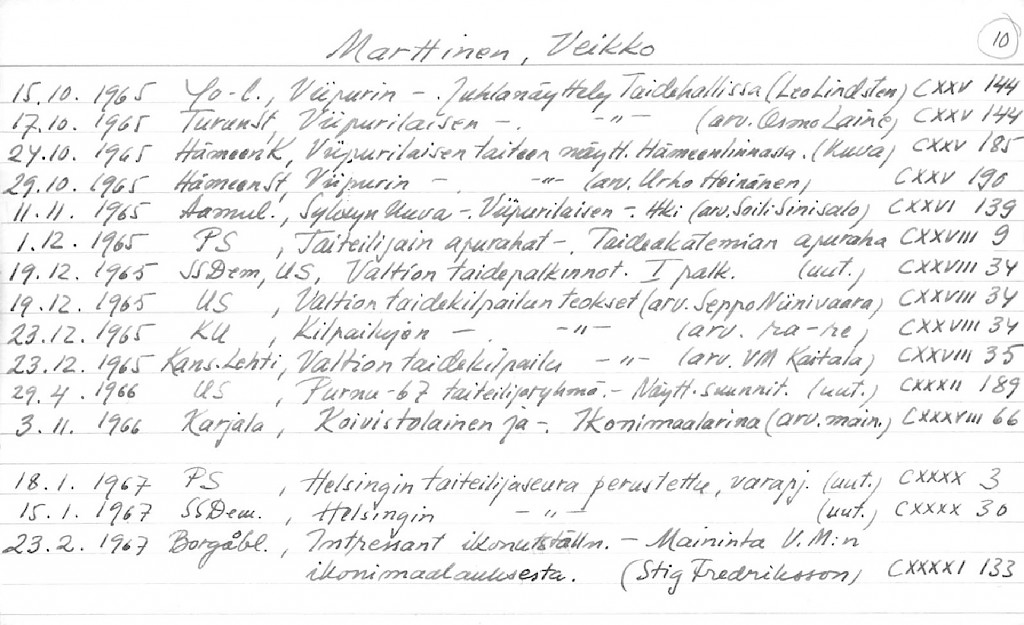 10
Marttinen, Veikko
15.10. 1965 Yo-l., Viipurin -. Juhlanäyttely Taidehallissa (Leo Lindsten) CXXV 144
17.10. 1965 TurunSt, Viipurilaisen -. -"- (arv. Osmo Laine) CXXV 144
24.10. 1965 HämeenK, Viipurilaisen taiteen näytt. Hämeenlinnassa. (Kuva) CXXV 185
29.10. 1965 HämeenSt, Viipurin -. -"- (arv. Urho Heinänen) CXXV 190
11.11. 1965 Aamul., Syksyn kuva -. Viipurilaisen -. Hki (arv. Soili Sinisalo) CXXVI 139
1.12. 1965 PS , Taiteilijain apurahat -. Taideakatemian apuraha CXXVIII 9
19.12. 1965 SSDem, US, Valtion taidepalkinnot. I palk. (uut.) CXXVIII 34
19.12. 1965 US , Valtion taidekilpailun teokset (arv. Seppo Niinivaara) CXXVIII 34
23.12. 1965 KU , Kilpailujen - -"- (arv. ra-re) CXXVIII 34
23.12. 1965 Kans.Lehti, Valtion taidekilpailu -"- (arv. VM Kaitala) CXXVIII 35
29.4. 1966 US , Purnu-67 taiteilijaryhmä. - Näytt. suunnit. (uut.) CXXXII 189
3.11. 1966 Karjala, Koivistolainen ja -. Ikonimaalarina (arv. main.) CXXXVIII 66
18.1. 1967 PS , Helsingin taiteilijaseura perustettu, varapj. (uut.) CXXXX 3
15.1. 1967 SSDem. , Helsingin -"- (uut.) CXXXX 30
23.2. 1967 Borgåbl., Intressant ikonutställn. - Maininta V.M:n
ikonimaalauksesta. (Stig Fredriksson) CXXXXI 133